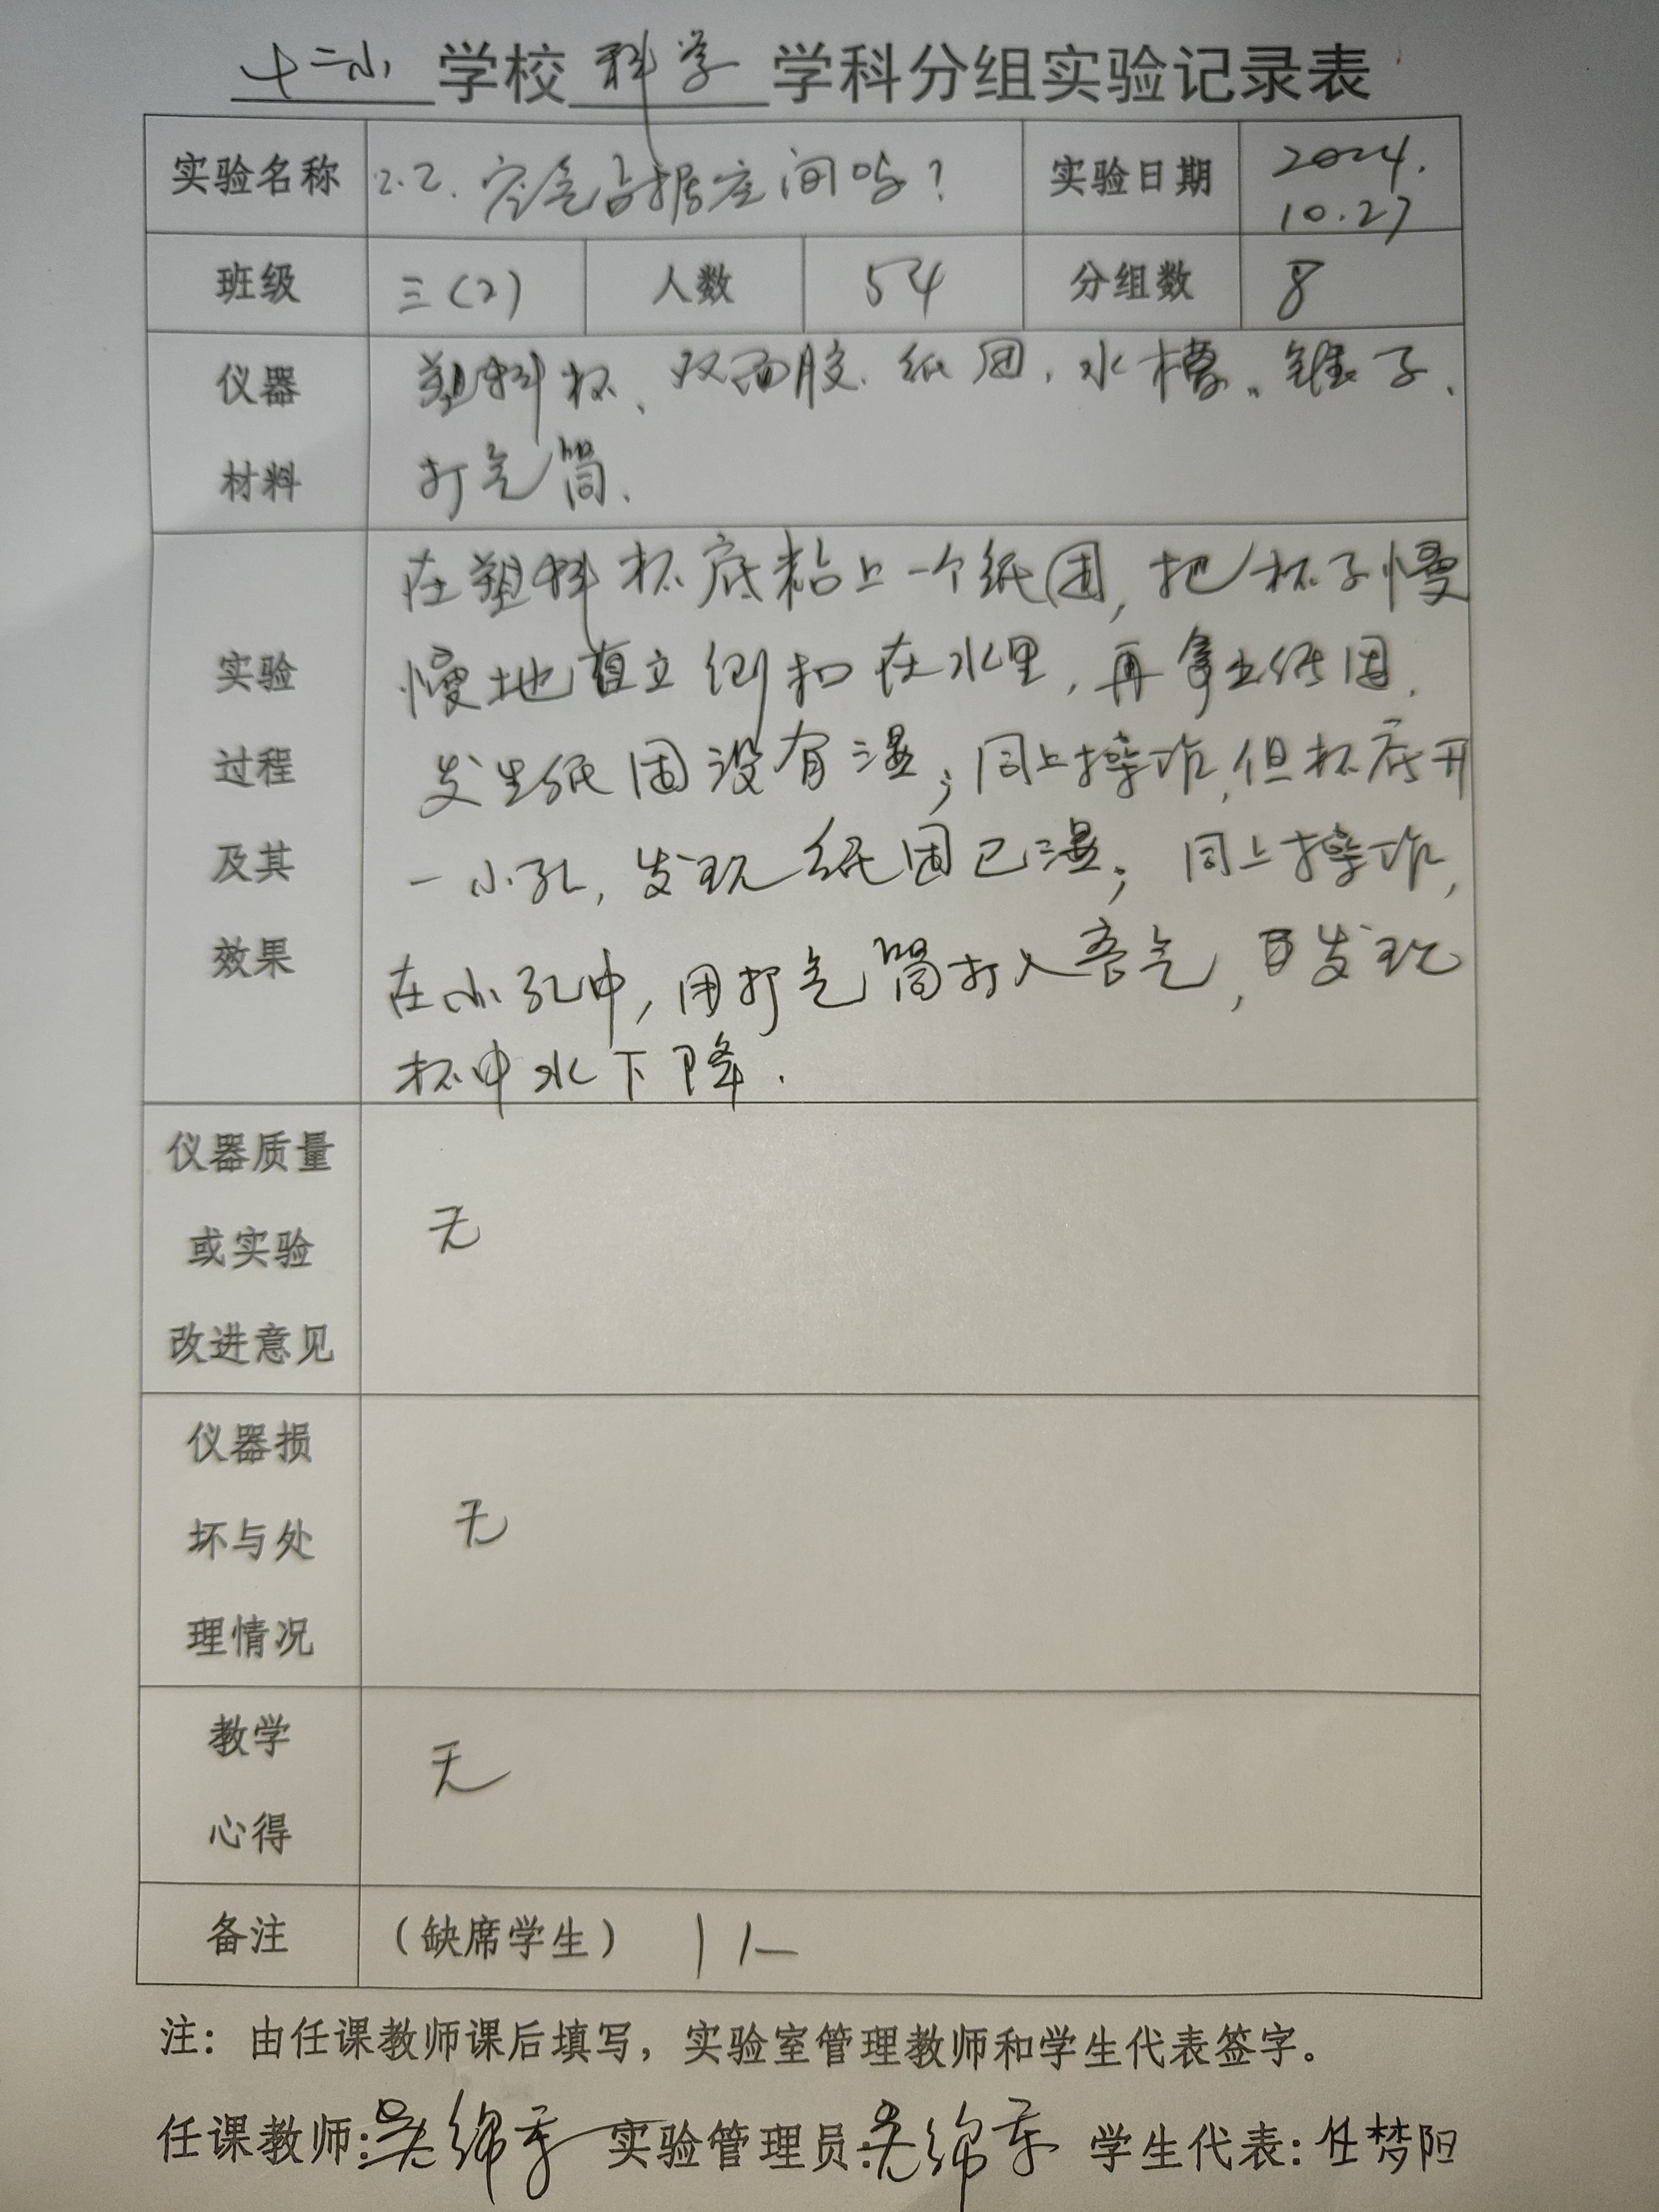 十二小 学校 科学 学科分组实验记录表
实验名称 2.2. 空气占据空间吗? 实验日期 2024. 10.27
班级 三(2) 人数 54 分组数 8
仪器 材料
塑料杯、双面胶、纸团、水槽、锥子、
打气筒.
实验 过程 及其 效果
在塑料杯底粘上一个纸团,把杯子慢
慢地直立倒扣在水里,再拿出纸团.
发生纸团没有湿;同上操作,但杯底开
一小孔,发现纸团已湿;同上操作,
在小孔中,用打气筒打入空气,发现
杯中水下降.
仪器质量 或实验 改进意见
无
仪器损 坏与处 理情况
无
教学 心得
无
备注 (缺席学生) 1人
注:由任课教师课后填写,实验室管理教师和学生代表签字。
任课教师: 实验管理员: 学生代表:任梦阳